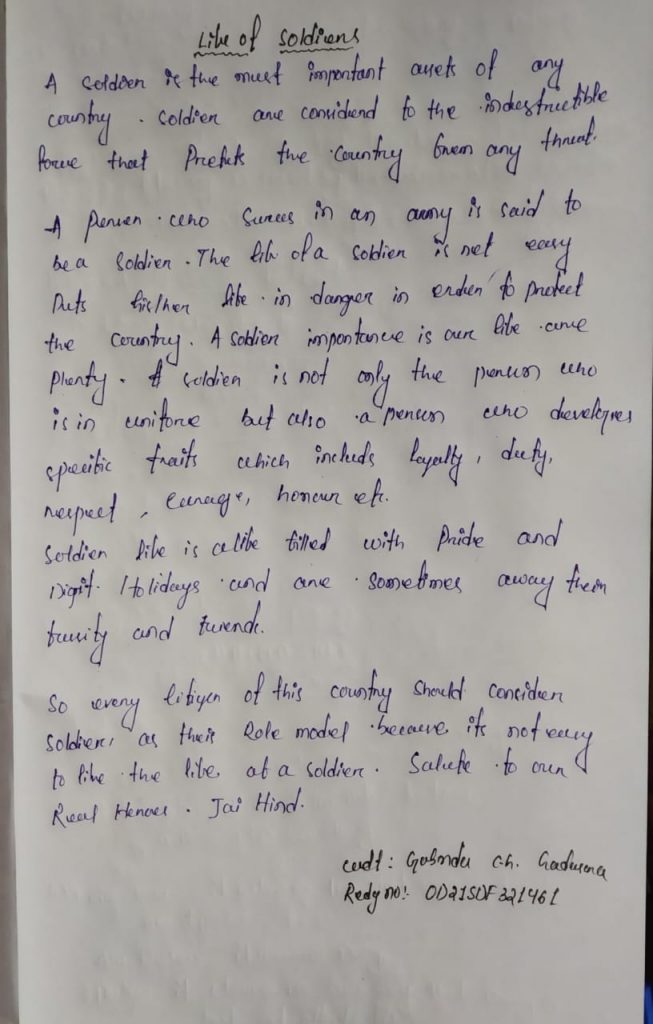 Life of Soldiers
A Soldier is the most important assets of any
country. Soldier are considered to the indestructible
force that Protects the country from any threat.
A Person who Serves in an army is said to
be a Soldier. The life of a Soldier is not easy
Puts his/her life in danger in order to protect
the country. A Soldier importance is our life are
Plenty. A soldier is not only the person who
is in uniform but also a person who developes
specific traits which includs loyalty, duty,
respect, courage, honour etc.
Soldier life is a life filled with Pride and
Holidays and are sometimes away them
and friends.
So every citizen of this country should consider
Soldiers as their Role model because its not easy
to live the life of a soldier. Salute to our
Real Heroes. Jai Hind.
cadt: ch.
Redg no:- OD21SDF321461